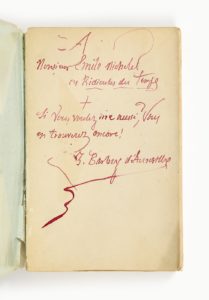 A
Monsieur Emile
es Ridicules du Temps
+
Si vous voulez rire aussi, Vous
en trouverez encore!
J. Barbey d'Aurevilly